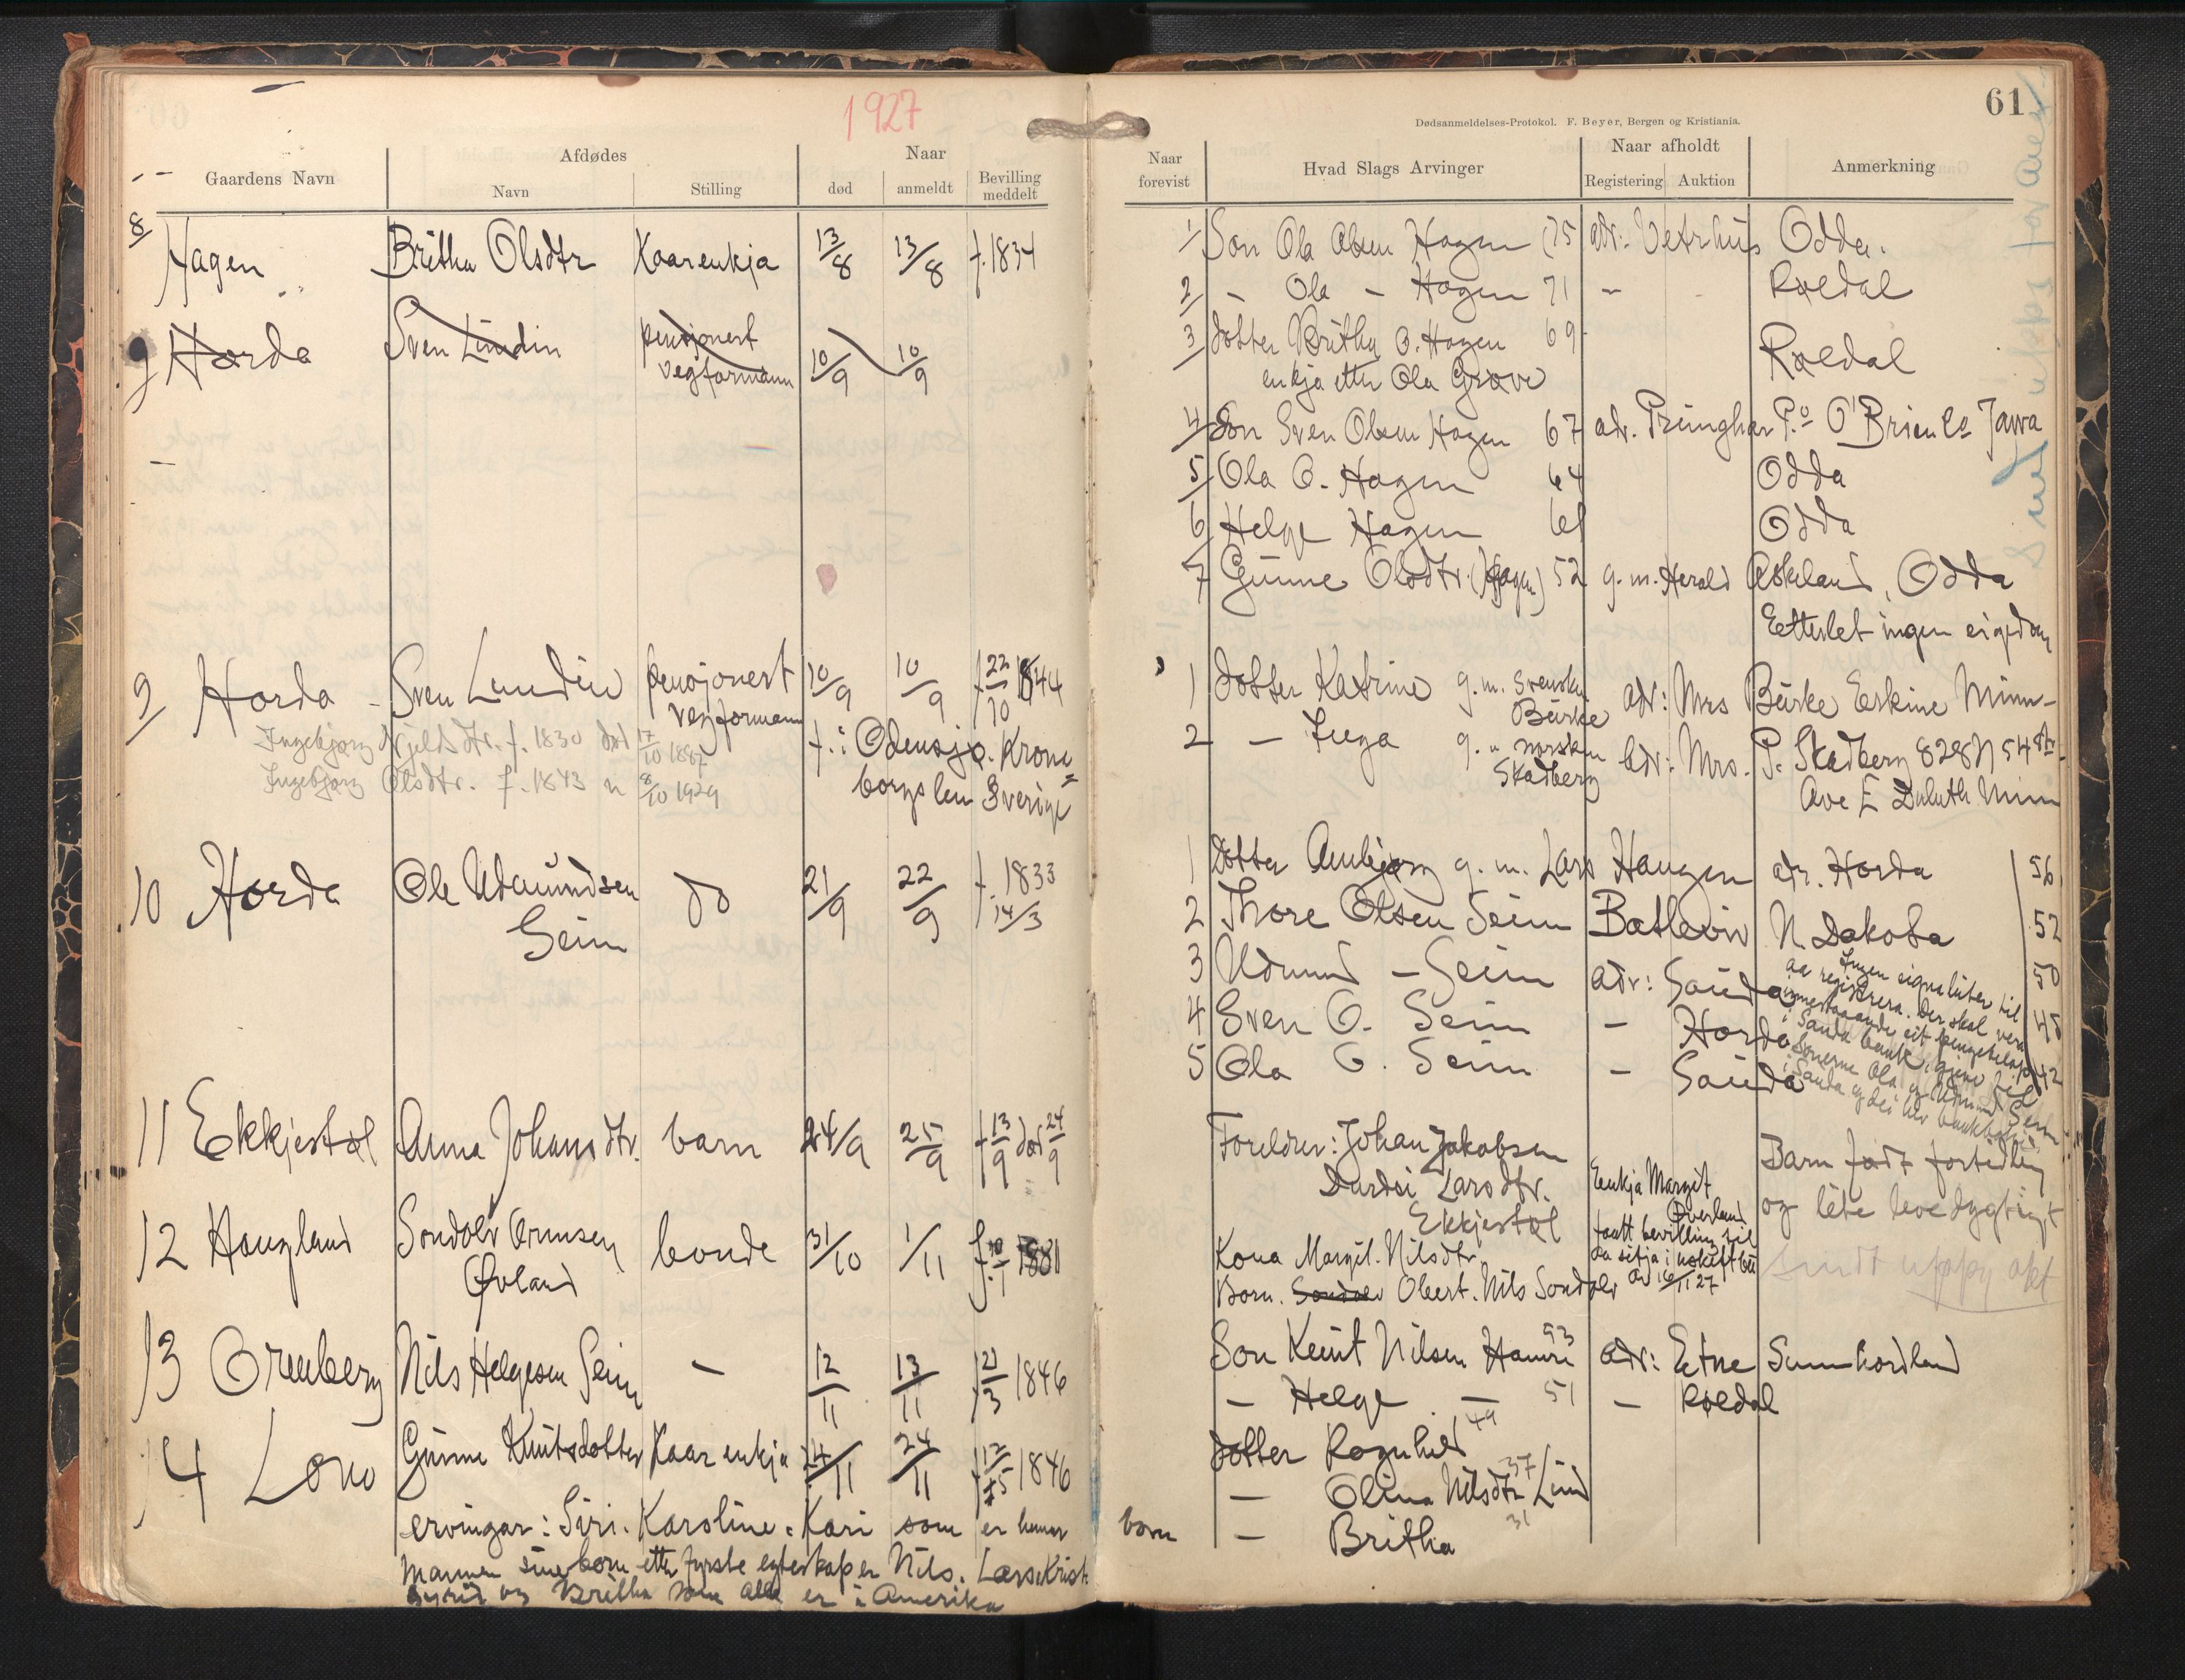 1927
Afdødes
Naar
Gaardens Navn
Navn
Stilling
død
anmeldt
Bevilling meddelt
8 Hagen Britha Olsdtr Kaarenkja 13/8 13/8 f. 1834
9 Horda Sven Lundin pensjonert vegformann 10/9 10/9
9 Horda Sven Lundin pensjonert vegformann 10/9 10/9 f 22/10 1844
f. i Odensjø. Krone=
borgs len Sverige
Ingebjørg Njelsdtr. f. 1830 død 17/10 1887
Ingebjørg Olsdtr. f. 1843 8/10 1929
10 Horda Ole Udmundsen Seim do 21/9 22/9 f. 1833 14/3
11 Ekkjestøl Anna Johansdtr. barn 24/9 25/9 f 13/9 død 24/9
12 Haugland Sondolv Ormsen Øvland bonde 31/10 1/11 1881
13 Grønberg Nils Helgesen Seim - 12/11 13/11 f 21/3 1846
14 Lono Gunne Knutsdotter Kaarenkja 24/11 24/11 1846
ervingar: Siri. Karoline. Kari som er hennar born
Mannen sine born etter fyrste egteskap er Nils. Lars. Krist.
og Britha som alle er i Amerika
61
Dødsanmeldelses-Protokol. F. Beyer, Bergen og Kristiania.
Naar forevist
Hvad Slags Arvinger
Naar afholdt
Registering
Auktion
Anmerkning
1 Son Ola Olsen Hagen 75 adr: Vetrhus Odda.
2 - Ola - Hagen 71 - Røldal
3 dotter Britha O. Hagen 69
enkja etter Ola Grave Røldal
4 Son Sven Olsen Hagen 67 adr. Primghar P.o O'Brien Co Jowa
5 Ola O. Hagen 64 Odda
6 Helge Hagen 61 Odda
7 Gunne Olsdtr. (Hagen) 52 g. m. Herald Askeland, Odda
Etterlet ingen eigedom
1 dotter Katrine g. m. svensken Burke adr: Mrs Burke Erskine Minn-
2 - Inga g. m norsken Skadberg adr: Mrs. P. Skadberg 828 N 54 str.
Ave E Duluth Minn
1 Dotter Ambjørg g. m. Lars Haugen adr. Horda 56
2 Thore Olsen Seim N. Dakota 52
3 Udmund - Seim adr: Sauda 50
4 Sven O. Seim - Horda 45
5 Ola O. Seim - Sauda 42
Ingen eignaluter til
aa registrera. Der skal vera
innestaaande eit pengebeløp
i Sauda bank,
Sonerne Ola og Udmund Seim
i Sauda og dei
Foreldre: Johan Jakobsen
Durdei Larsdtr.
Ekkjestøl
Barn født fortidleg
og lite levedygtigt
Kona Margit. Nilsdtr.
Born. Sondolv Olbert. Nils Sondolv
Enkja Margit Øverland
faatt bevilling til
aa sitja i uskift bu
16/11 27
Son Knut Nilsen Hamre 53 adr: Etne Sunnhordland
- Helge - 51 - Røldal
dotter Ragnhild 49
- Olina Nilsdtr Lund 37
- Britha 31